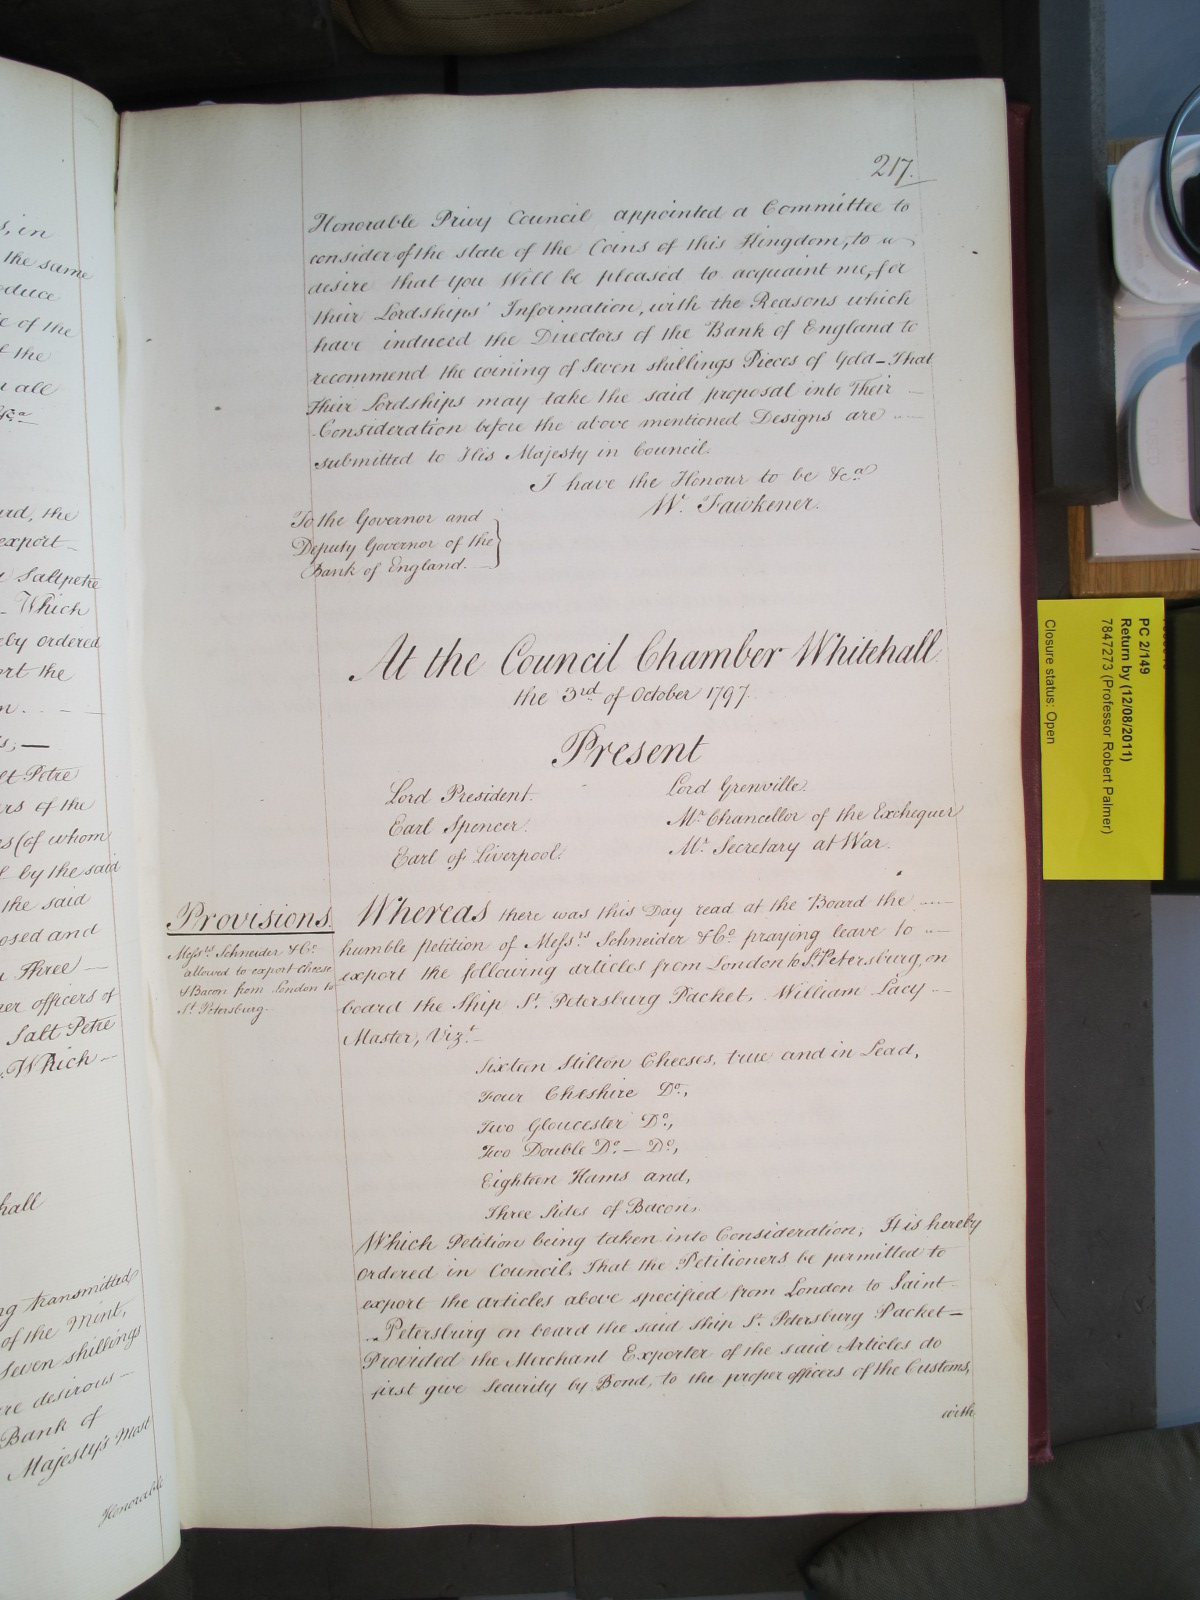 s, in
the same
oduce
e of the
t the
u all
&c.a
urd, the
export
Saltpetre
Which
eby ordered
ort the
n.
s;
lt Petre
ers of the
es (of whom
by the said
the said
osed and
Three
er officers of
Salt Petre
Which
hall
ng transmitted
of the Mint,
Seven shillings
re desirous
Bank of
Majesty's Most
Honorable
217.
Honorable Privy Council appointed a Committee to
consider of the state of the Coins of this Kingdom, to
desire that you Will be pleased to acquaint me, for
their Lordships' Information, with the Reasons which
have induced the Directors of the Bank of England to
recommend the coining of Seven shillings Pieces of Gold – That
Their Lordships may take the said proposal into Their
Consideration before the above mentioned Designs are
submitted to His Majesty in Council.
I have the Honour to be &c.a
W. Fawkener.
To the Governor and
Deputy Governor of the
Bank of England.
At the Council Chamber Whitehall
the 3rd of October 1797.
Present
Lord President.
Earl Spencer.
Earl of Liverpool.
Lord Grenville.
Mr. Chancellor of the Exchequer
Mr. Secretary at War.
Provisions.
Messrs. Schneider & Co.
allowed to export Cheese
& Bacon from London to
St. Petersburg
Whereas there was this Day read at the Board the
humble petition of Messrs. Schneider & Co. praying leave to
export the following articles from London to St. Petersburg, on
board the Ship St. Petersburg Packet, William Lacy
Master, Vizt.
Sixteen Stilton Cheeses, true and in Lead,
Four Cheshire Do.,
Two Gloucester Do.,
Two Double Do. – Do.,
Eighteen Hams and,
Three Sides of Bacon.
Which Petition being taken into Consideration, It is hereby
ordered in Council, That the Petitioners be permitted to
export the articles above specified from London to Saint
Petersburg on board the said ship St. Petersburg Packet –
Provided the Merchant Exporter of the said Articles do
first give Security by Bond, to the proper officers of the Customs,
with
PC 2/149
Return by (12/08/2011)
7847273 (Professor Robert Palmer)
Closure status: Open